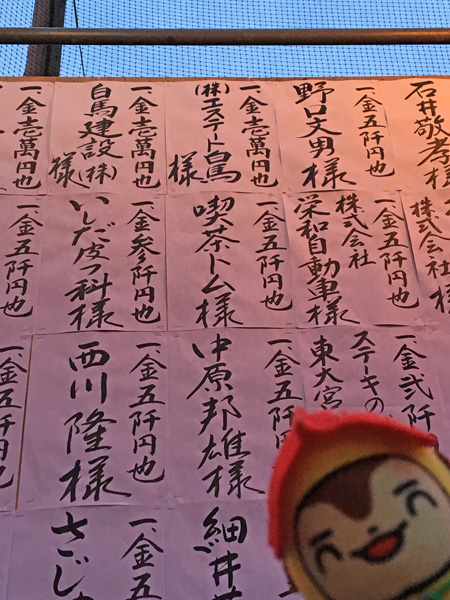 石井敬孝様
一、金五阡円也
野口丈男様
一、金壱萬円也
(株)エステート白馬様
一、金壱萬円也
白馬建設(株)様
一、金壱萬円也
株式会社
一、金五阡円也
株式会社
栄和自動車様
一、金五阡円也
喫茶トム様
一、金参阡円也
いしだ皮フ科様
一、金五阡円也
一、金弐阡
ステーキの
東大宮
一、金五阡
中原邦雄様
一、金五阡円也
西川隆様
一、金五阡円也
細井
一、金五
さじ